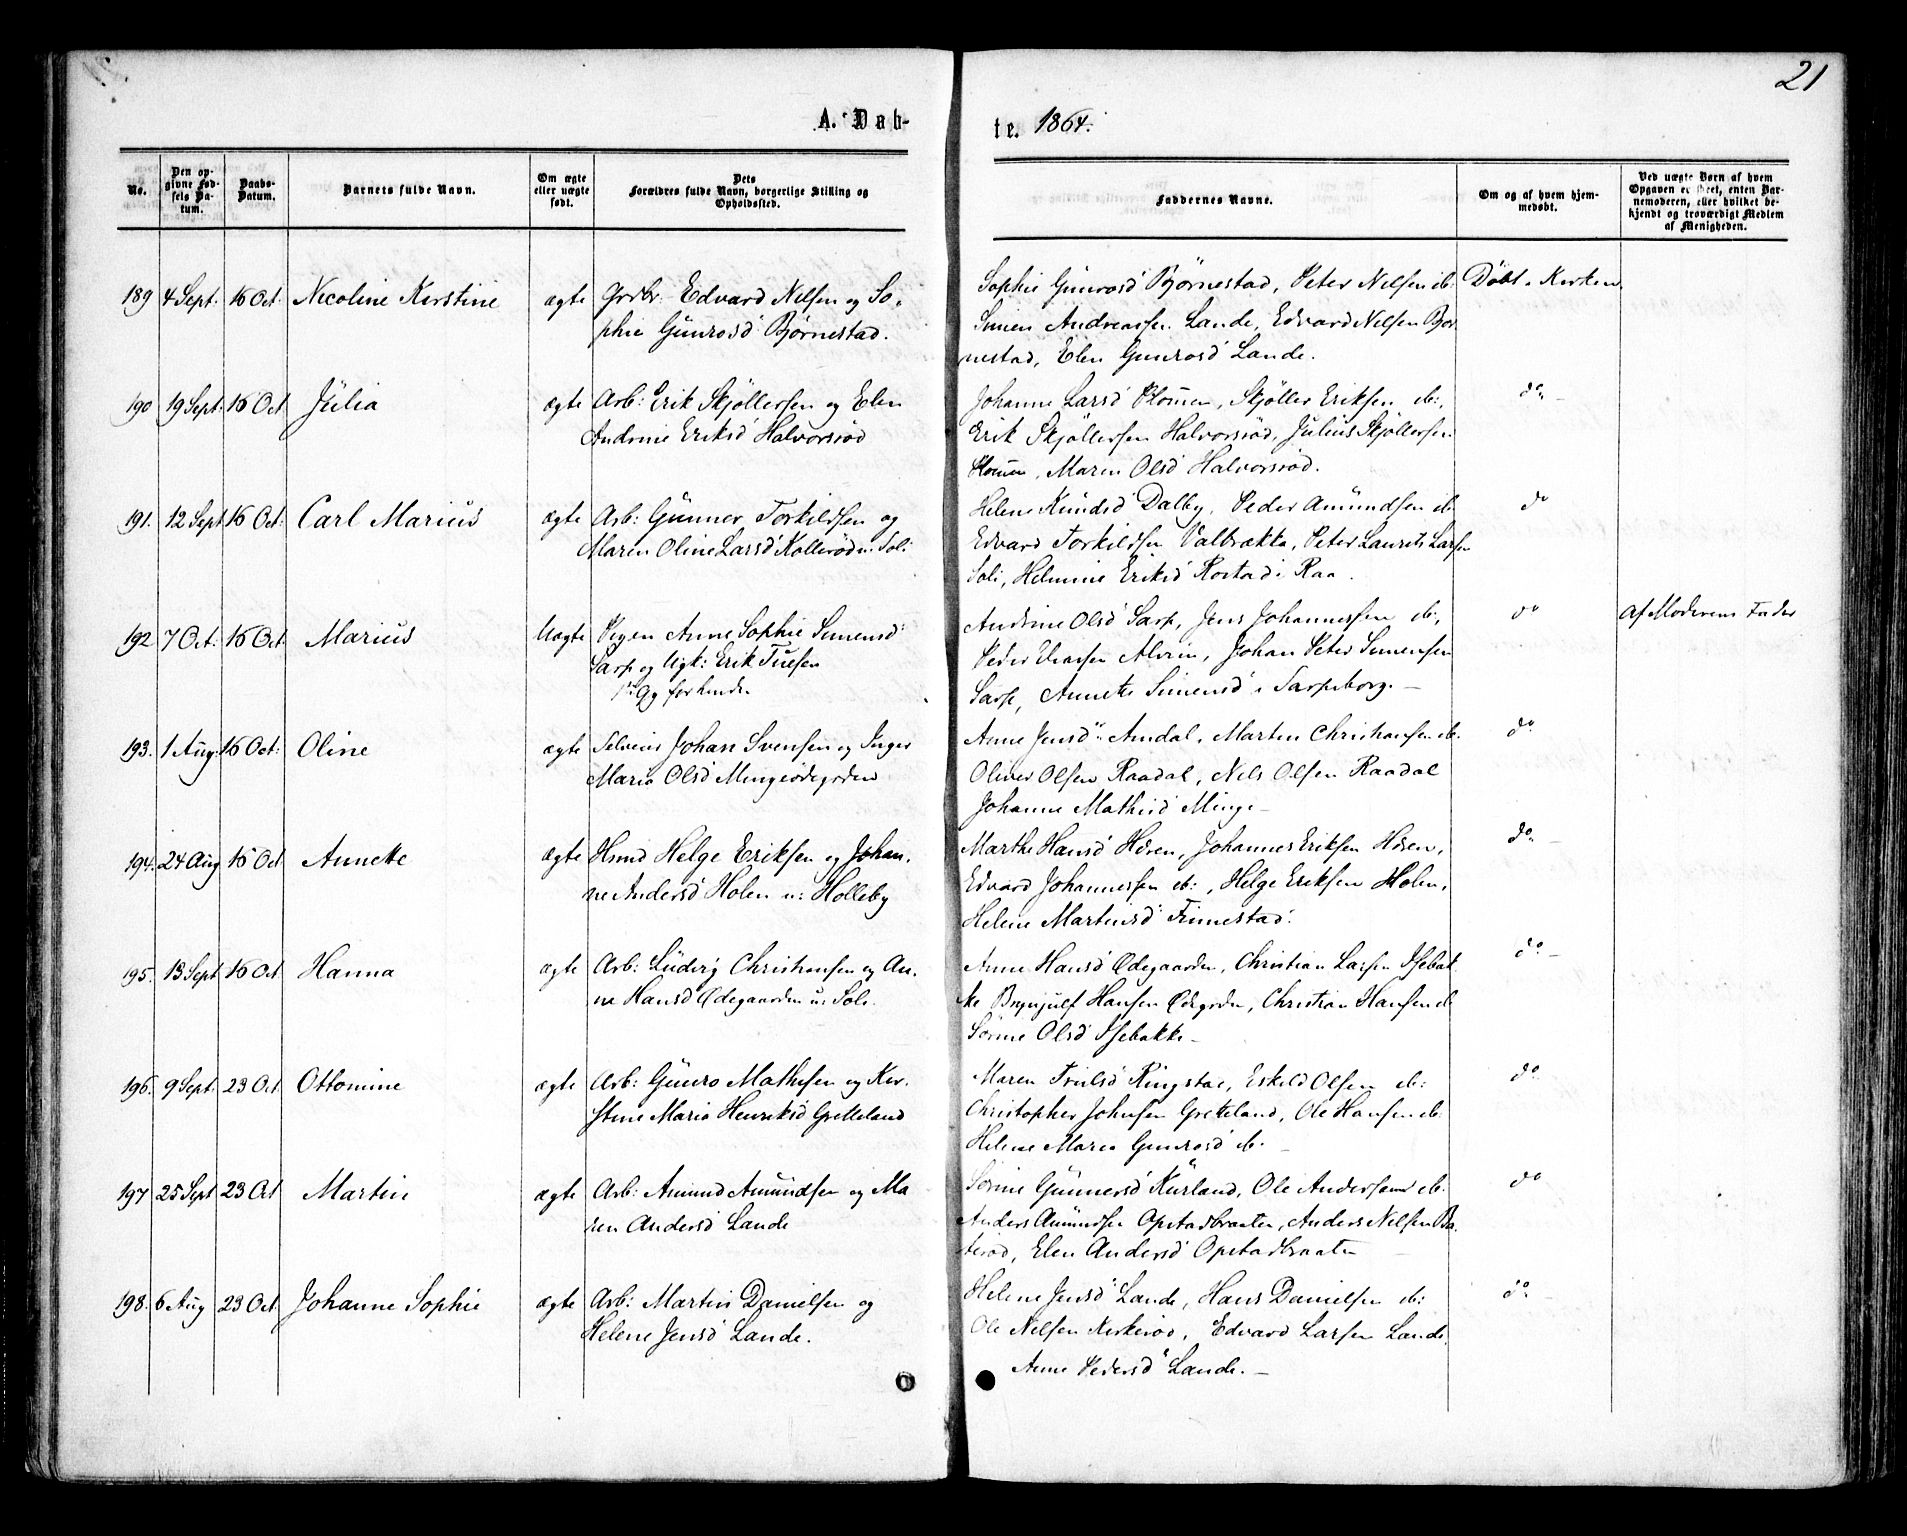 21
A. Døb-
te. 1864.
No.
Den op-
givne Fød-
sels Da-
tum.
Daabs-
Datum.
Barnets fulde Navn.
Om ægte
eller uægte
født.
Dets
Forældres fulde Navn, borgerlige Stilling og
Opholdssted.
Faddernes Navne.
Om og af hvem hjem-
medøbt.
Ved uægte Børn af hvem
Opgaven er skeet, enten Bar-
nemoderen, eller hvilket be-
kjendt og troværdigt Medlem
af Menigheden.
189 4 Sept. 16 Oct. Nicoline Kirstine ægte Grbr. Edvard Nilsen og So-
phie Gunrosd Bjørnestad.
Sophie Gunrosd Bjørnestad, Peter Nilsen ib.
Simen Andreassen Lande, Edvard Nilsen Bjør
nestad, Elen Gunrosd Lande.
Døbt i Kirken
190 19 Sept. 16 Oct Julia ægte Arb: Erik Skjøllersen og Elen
Andrine Eriksd Halvorsrød
Johanne Larsd Skjøller Eriksen ib:,
Erik Skjøllersen Halvorsrød, Julius Skjøllersen
Maren Olsd Halvorsrød.
do
191. 12 Sept 16 Oct: Carl Marius ægte Arb: Gunner Torkildsen og
Maren Oline Larsd Kollerød u: Soli
Helene Knudsd Dalby, Peder Amundsen ib
Edvard Torkildsen Valbrække, Peter Laurits Larsen
Soli, Helmine Eriksd Rostad i Raa.
do
192 7 Oct: 16 Oct Marius Uægte Pigen Anne Sophie Simensd
Sarp og Ugk: Erik Tuesen
1ste Gg for hende.
Andrine Olsd Sarp, Jens Johannessen ib:,
Peder Alvim, Johan Peter Simensen
Sarp, Annette Simensd i Sarpsborg. —
do
Af Moderens Fader
193. 1 Aug. 16 Oct: Oline ægte Selveier Johan Svensen og Inger
Maria Olsd Mingeødegården
Anne Jensd Amdal, Martin Christiansen ib.
Oliver Olsen Raadal, Nils Olsen Raadal
Johanne Mathisd Minge —
do
194. 24 Aug 16 Oct Annette ægte Hsmd Helge Eriksen og Johan-
ne Andersd Holen u: Holleby
Marthe Hansd Høsen, Johannes Eriksen Høsen,
Edvard Johannessen ib:, Helge Eriksen Holen,
Helene Martinsd Finnestad.
do —
195. 13 Sept 16 Oct Hanna ægte Arb: Ludvig Christiansen og An-
ne Hansd Ødegaarden u: Soli.
Anne Hansd Ødegaarden, Christian Larsen Isebak
ke Brynjulf Hansen Ødegrden, Christian Hansen ib
Sørine Olsd Isebakke —
do —
196. 9 Sept. 23 Oct Ottomine ægte Arb: Gunro Mathisen og Kir-
stine Maria Henriksd Gretteland
Maren Trulsd Ringstad, Eskild Olsen ib:
Christopher Johnsen Gretteland, Ole Hansen ib
Helene Maria Gunrosd ib. —
do
197 25 Sept 23 Oct Martin ægte Arb: Amund Amundsen og Ma
ren Andersd Lande
Sørine Gunnersd Kurland, Ole Anderssen ib.
Anders Amundsen Opstadbraaten, Anders Nilsen Ba
terød, Elen Andersd Opstadbraaten
do
198. 6 Aug 23 Oct Johanne Sophie ægte Arb: Martin Danielsen og
Helene Jensd Lande.
Helene Jensd Lande, Hans Danielsen ib:
Ole Nilsen Kirkerød, Edvard Larsen Lande.
Anne Pedersd Lande. —
do —